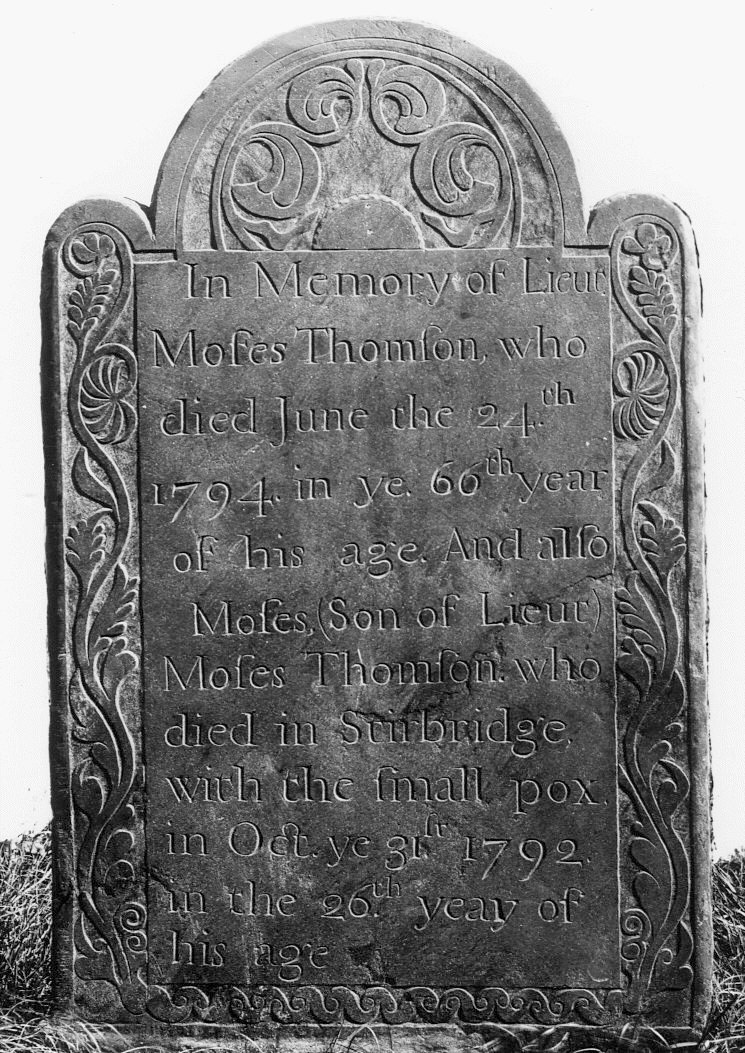 In Memory of Lieut.
Moſes Thomſon, who
died June the 24.th
1794. in ye. 66th year
of his age. And alſo
Moſes, (Son of Lieut)
Moſes Thomſon. who
died in Sturbridge,
with the ſmall pox.
in Oct. ye 31.ſt 1792.
in the 26.th year of
his age